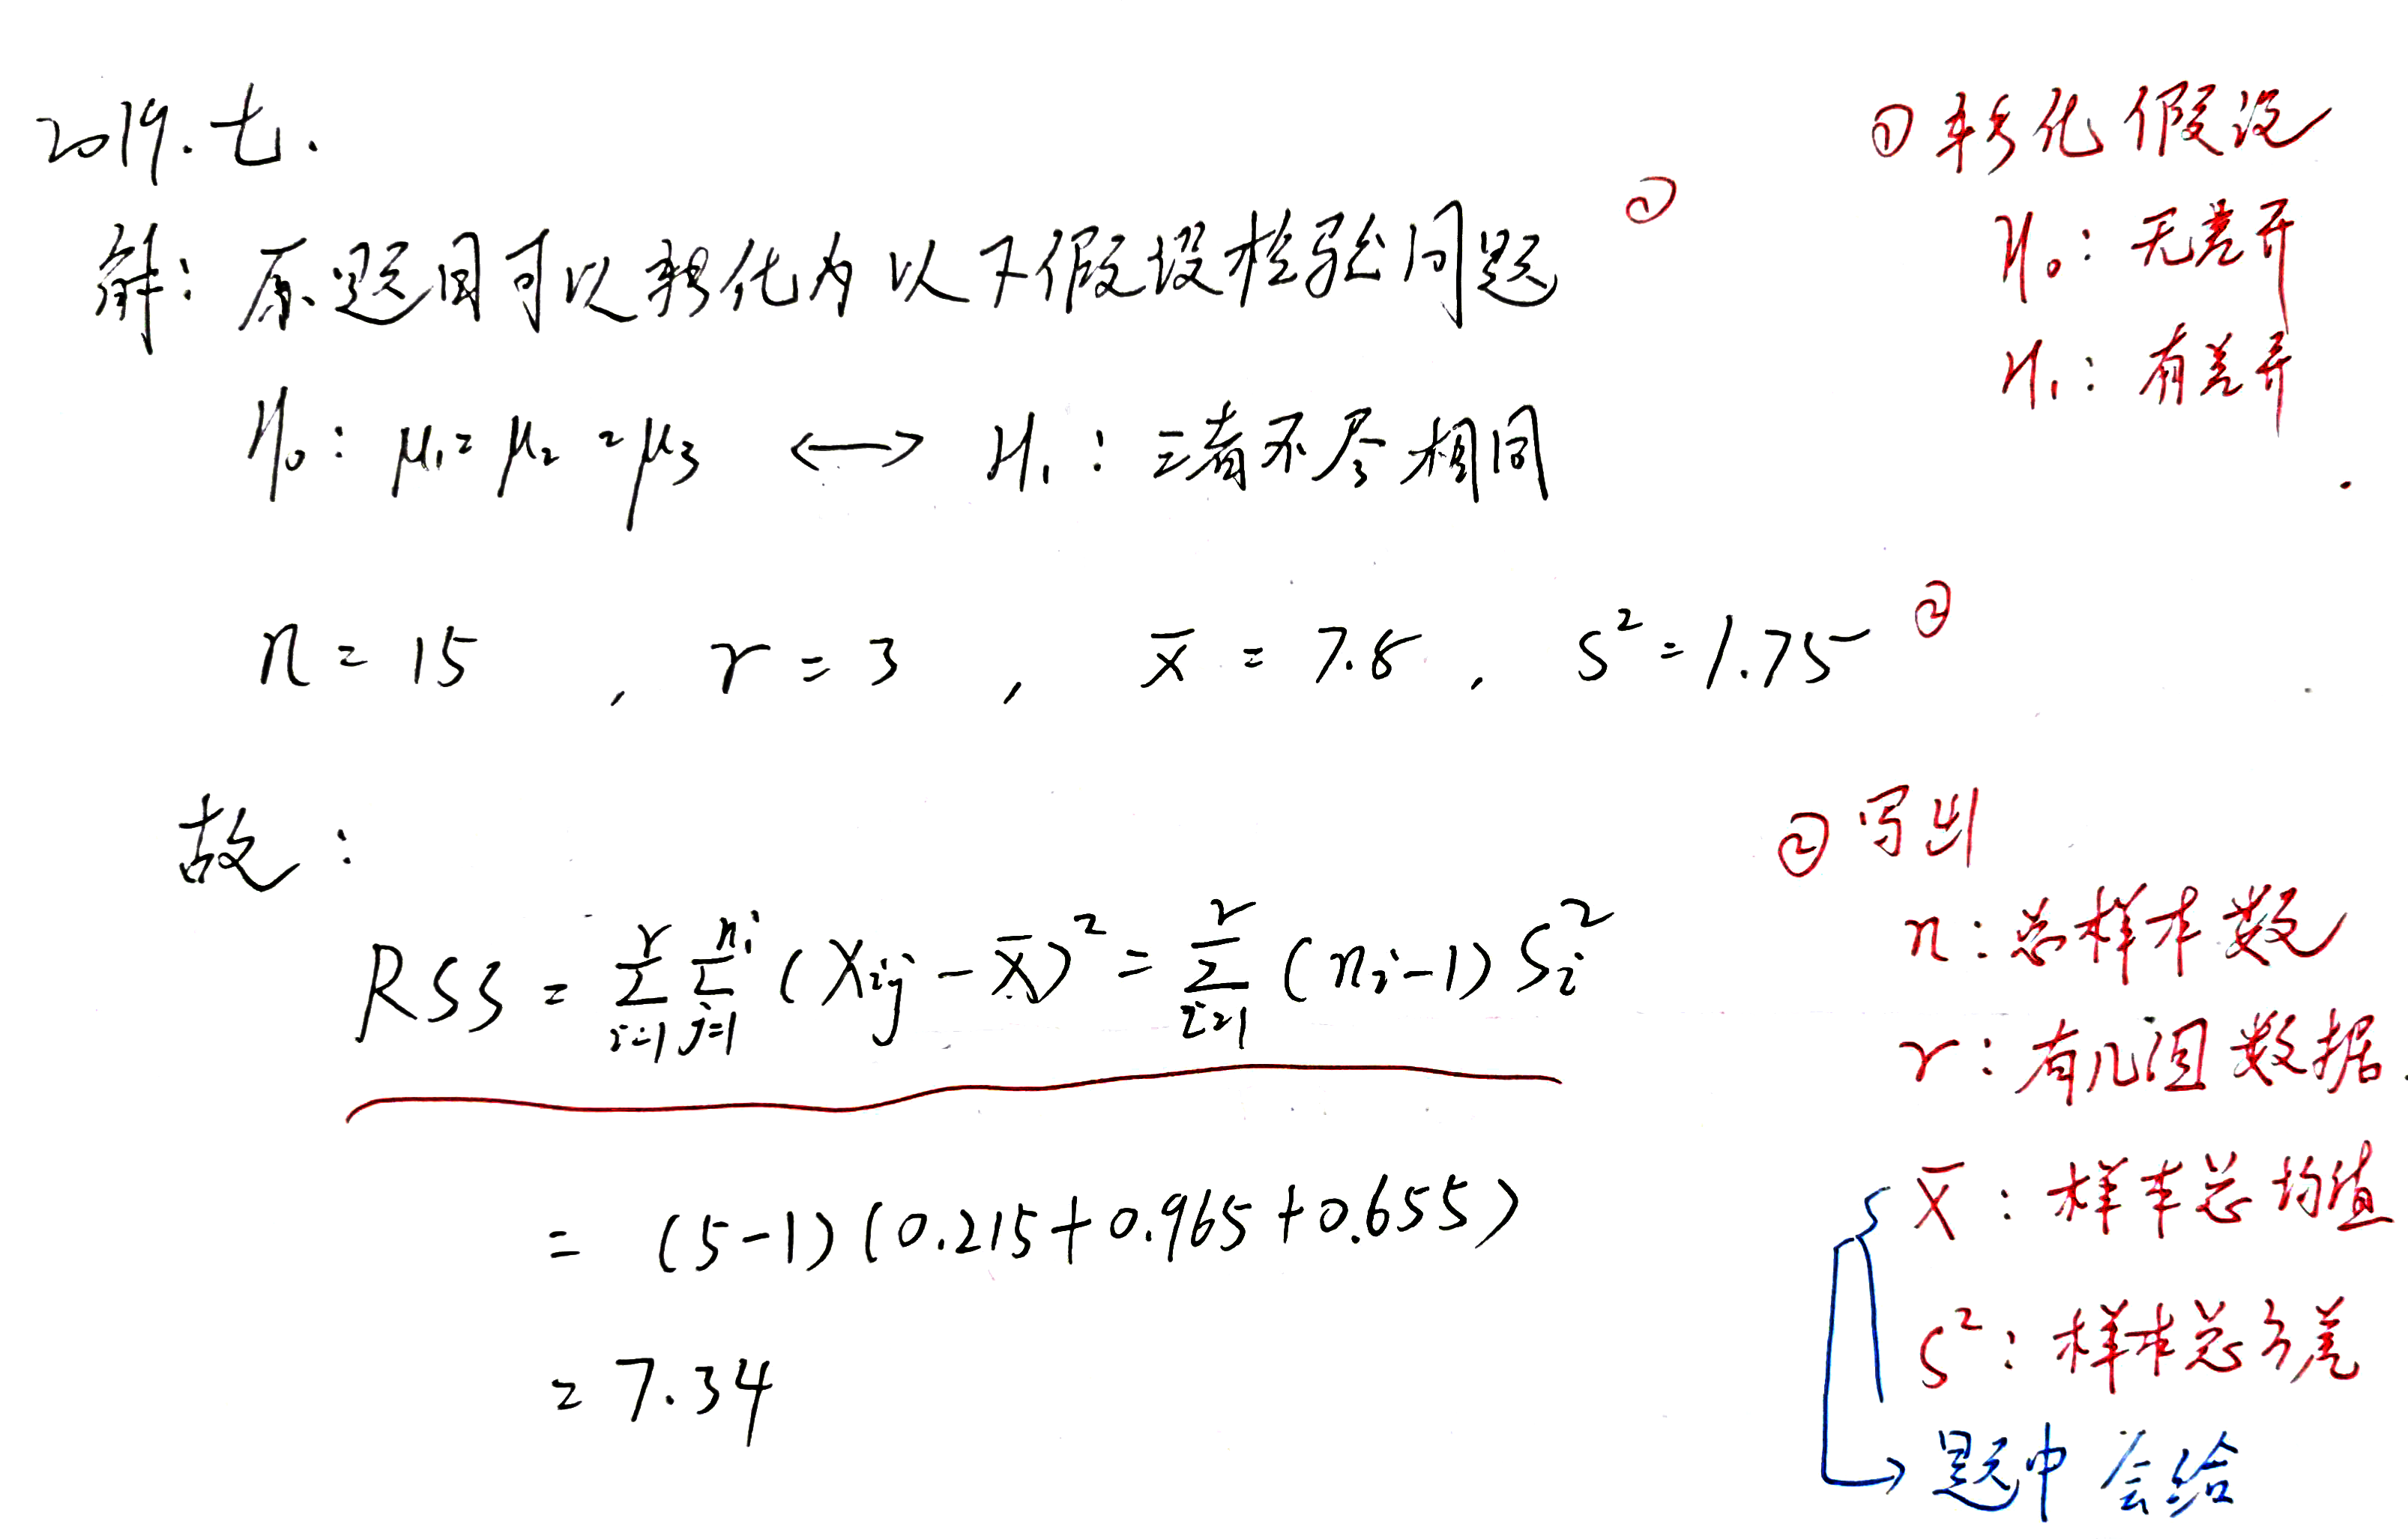 2019.七.
① 转化假设
解：原题目可以转化为以下假设检验问题 ①
H₀：无差异
H₁：有差异
H₀：μ₁=μ₂=μ₃ ⟷ H₁：三者不尽相同
n=15，r=3，x̄=7.8，S²=1.75 ②
故：
② 写出
n：总样本数
RSS = Σ_{i=1}^{r} Σ_{j=1}^{n_i} (X_{ij} - X̄)² = Σ_{i=1}^{r} (n_i-1) S_i²
r：有几组数据.
= (5-1)(0.215+0.965+0.655)
X̄：样本总均值
S²：样本总方差
= 7.34
→ 题中会给